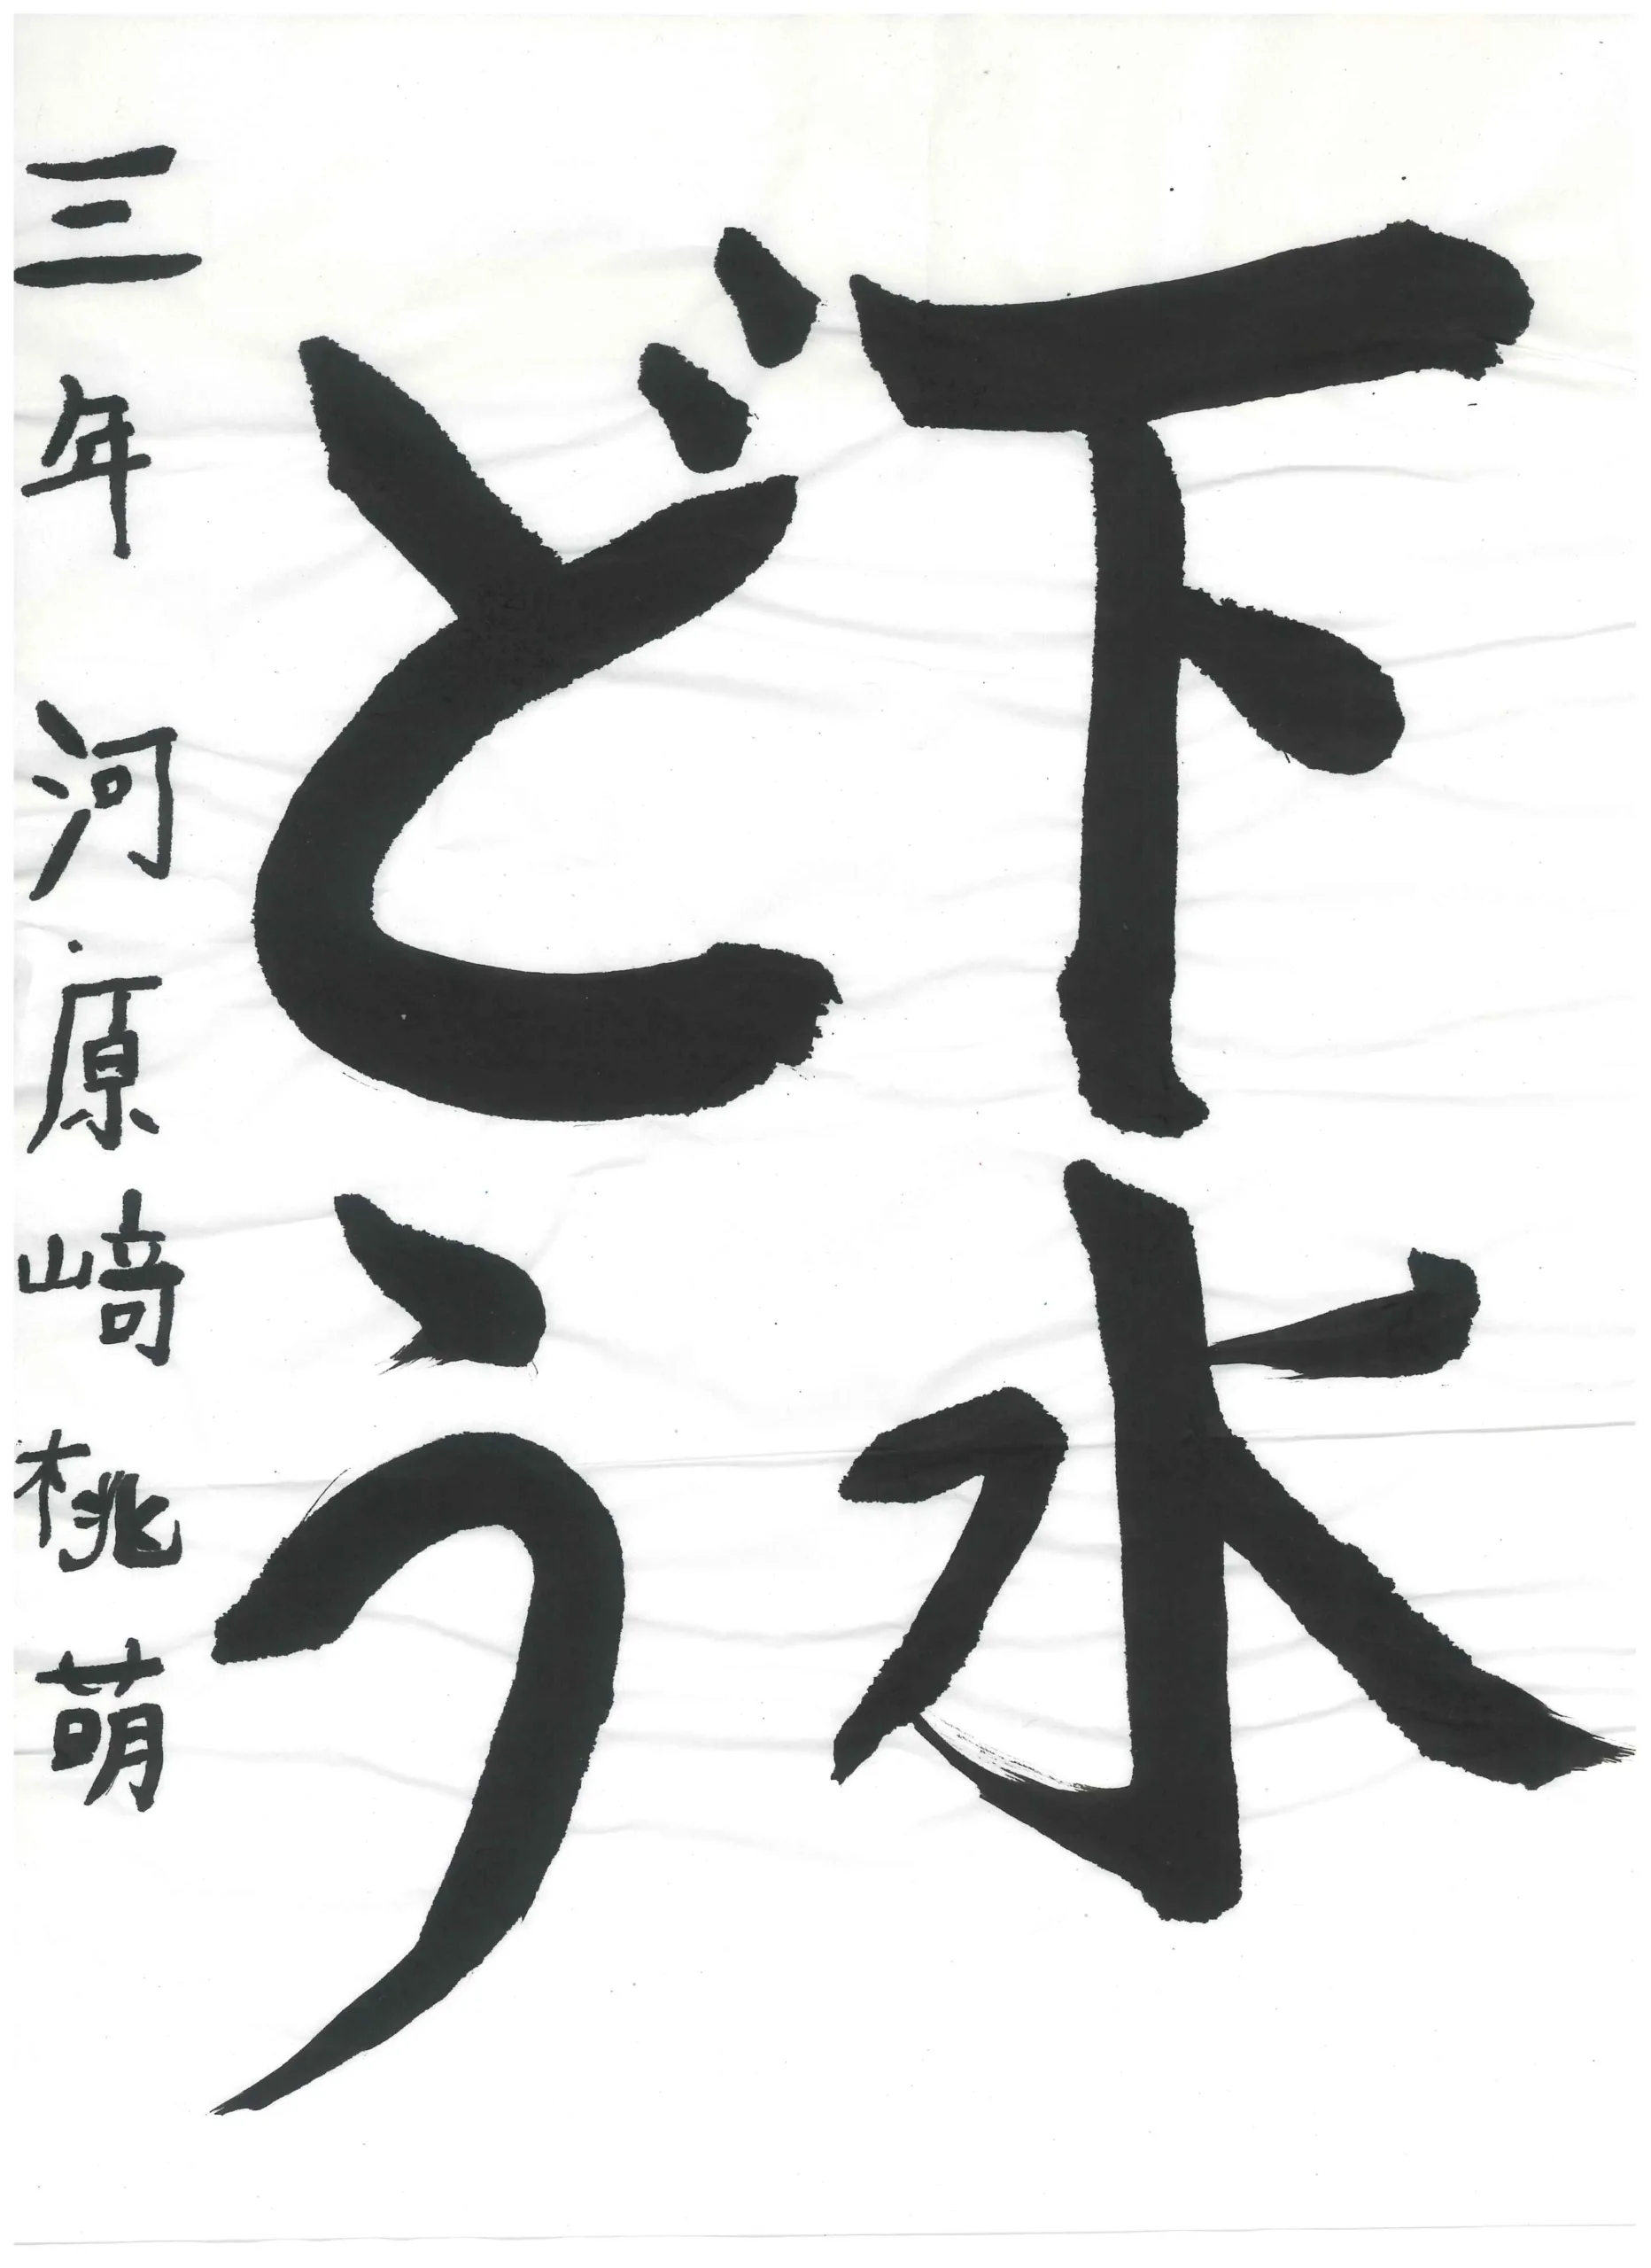 下水
どう
三年 河原﨑桃萌